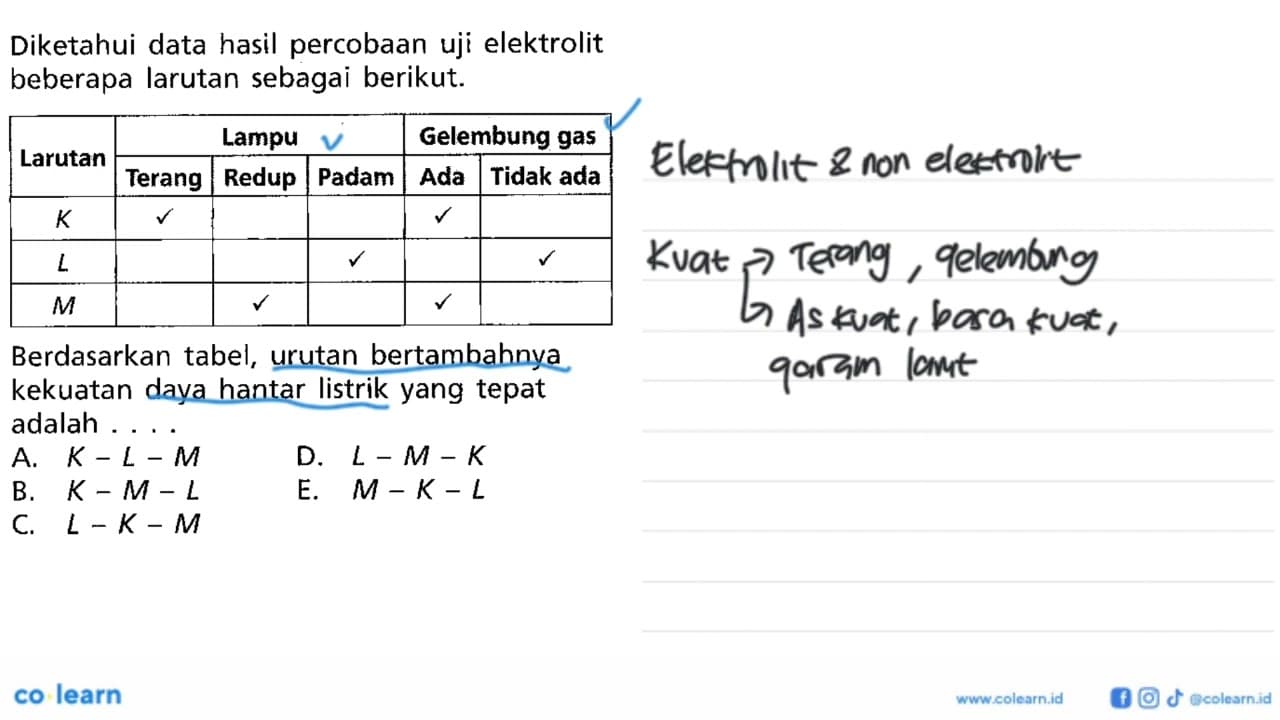 Diketahui data hasil percobaan uji elektrolit
beberapa larutan sebagai berikut.
Larutan Lampu Gelembung gas
Terang Redup Padam Ada Tidak ada
K ✓ ✓
L ✓ ✓
M ✓ ✓
Berdasarkan tabel, urutan bertambahnya
kekuatan daya hantar listrik yang tepat
adalah . . . .
A. K – L – M D. L – M – K
B. K – M – L E. M – K – L
C. L – K – M
Elektrolit & non elektrolit
Kuat → Terang, gelembung
↳ As kuat, basa kuat,
garam larut
co learn
www.colearn.id @colearn.id